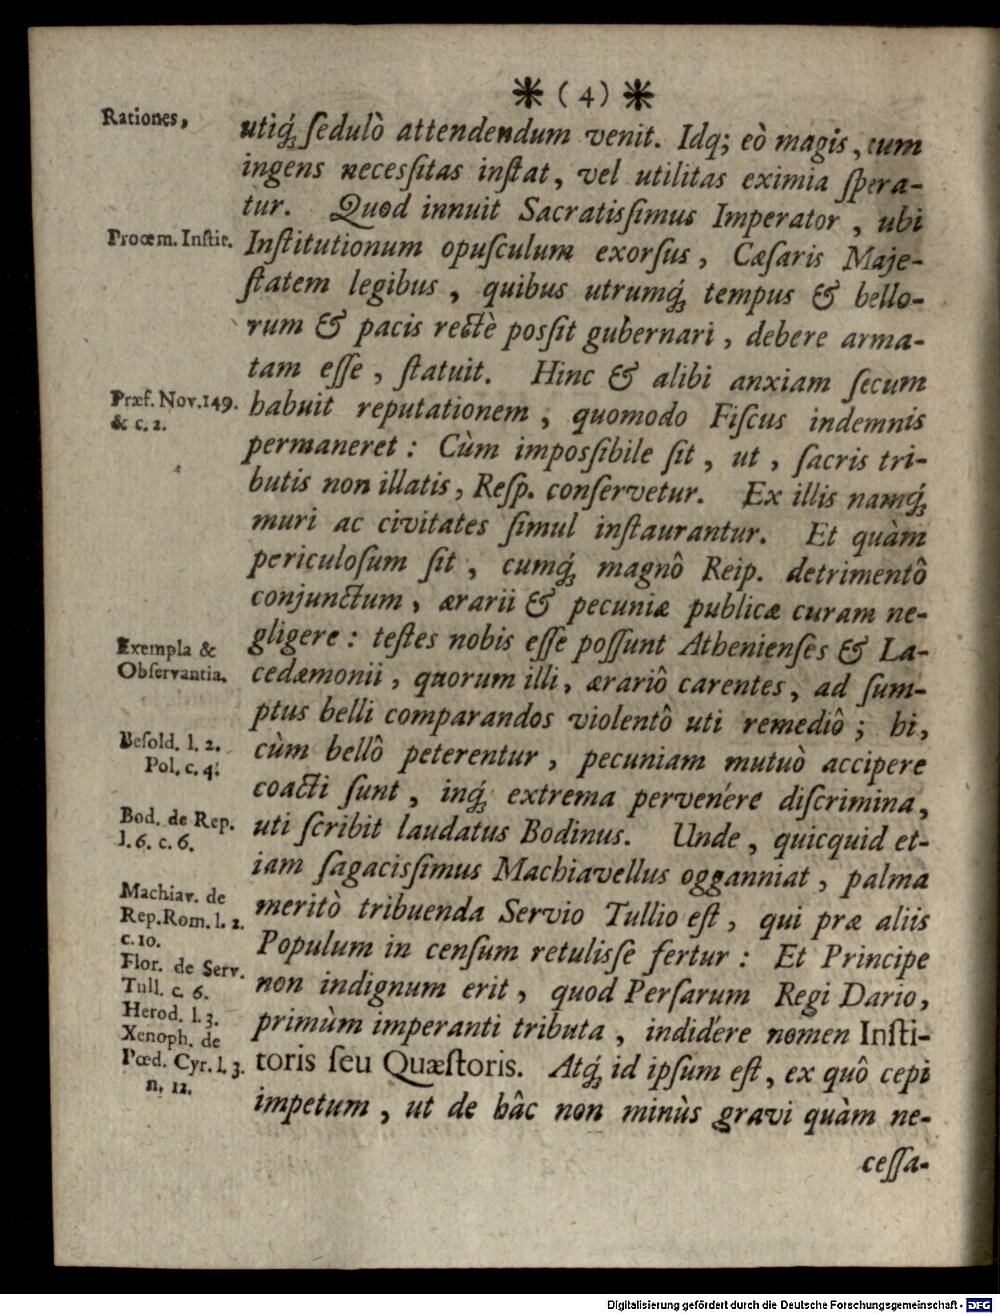 ❋ (4) ❋
Rationes,
utiq́; ſedulò attendendum venit. Idq; eò magis, cum
ingens neceſſitas inſtat, vel utilitas eximia ſpera-
tur. Quod innuit Sacratisſimus Imperator, ubi
Prooem. Inſtit.
Inſtitutionum opuſculum exorſus, Cæſaris Maje-
ſtatem legibus, quibus utrumq́; tempus & bello-
rum & pacis rectè posſit gubernari, debere arma-
tam eſſe, ſtatuit. Hinc & alibi anxiam ſecum
Præf. Nov. 149.
& c. 2.
habuit reputationem, quomodo Fiſcus indemnis
permaneret: Cùm imposſibile ſit, ut, ſacris tri-
butis non illatis, Reſp. conſervetur. Ex illis namq́;
muri ac civitates ſimul inſtaurantur. Et quàm
periculoſum ſit, cumq́; magnô Reip. detrimentô
conjunctum, ærarii & pecuniæ publicæ curam ne-
gligere: teſtes nobis eſſe poſſunt Athenienſes & La-
Exempla &
Obſervantia.
cedæmonii, quorum illi, ærariô carentes, ad ſum-
ptus belli comparandos violentô uti remediô; hi,
Beſold. l. 2.
Pol. c. 4.
cùm bellô peterentur, pecuniam mutuò accipere
coacti ſunt, inq́; extrema pervenére diſcrimina,
Bod. de Rep.
l. 6. c. 6.
uti ſcribit laudatus Bodinus. Unde, quicquid et-
iam ſagacisſimus Machiavellus ogganniat, palma
Machiav. de
Rep. Rom. l. 2.
c. 10.
meritò tribuenda Servio Tullio eſt, qui præ aliis
Populum in cenſum retulisſe fertur: Et Principe
Flor. de Serv.
Tull. c. 6.
non indignum erit, quod Perſarum Regi Dario,
Herod. l. 3.
primùm imperanti tributa, indidére nomen Inſti-
Xenoph. de
Pœd. Cyr. l. 3.
n. 12.
toris ſeu Quæſtoris. Atq́; id ipſum eſt, ex quô cepi
impetum, ut de hâc non minùs gravi quàm ne-
ceſſa-
Digitalisierung gefördert durch die Deutsche Forschungsgemeinschaft - DFG